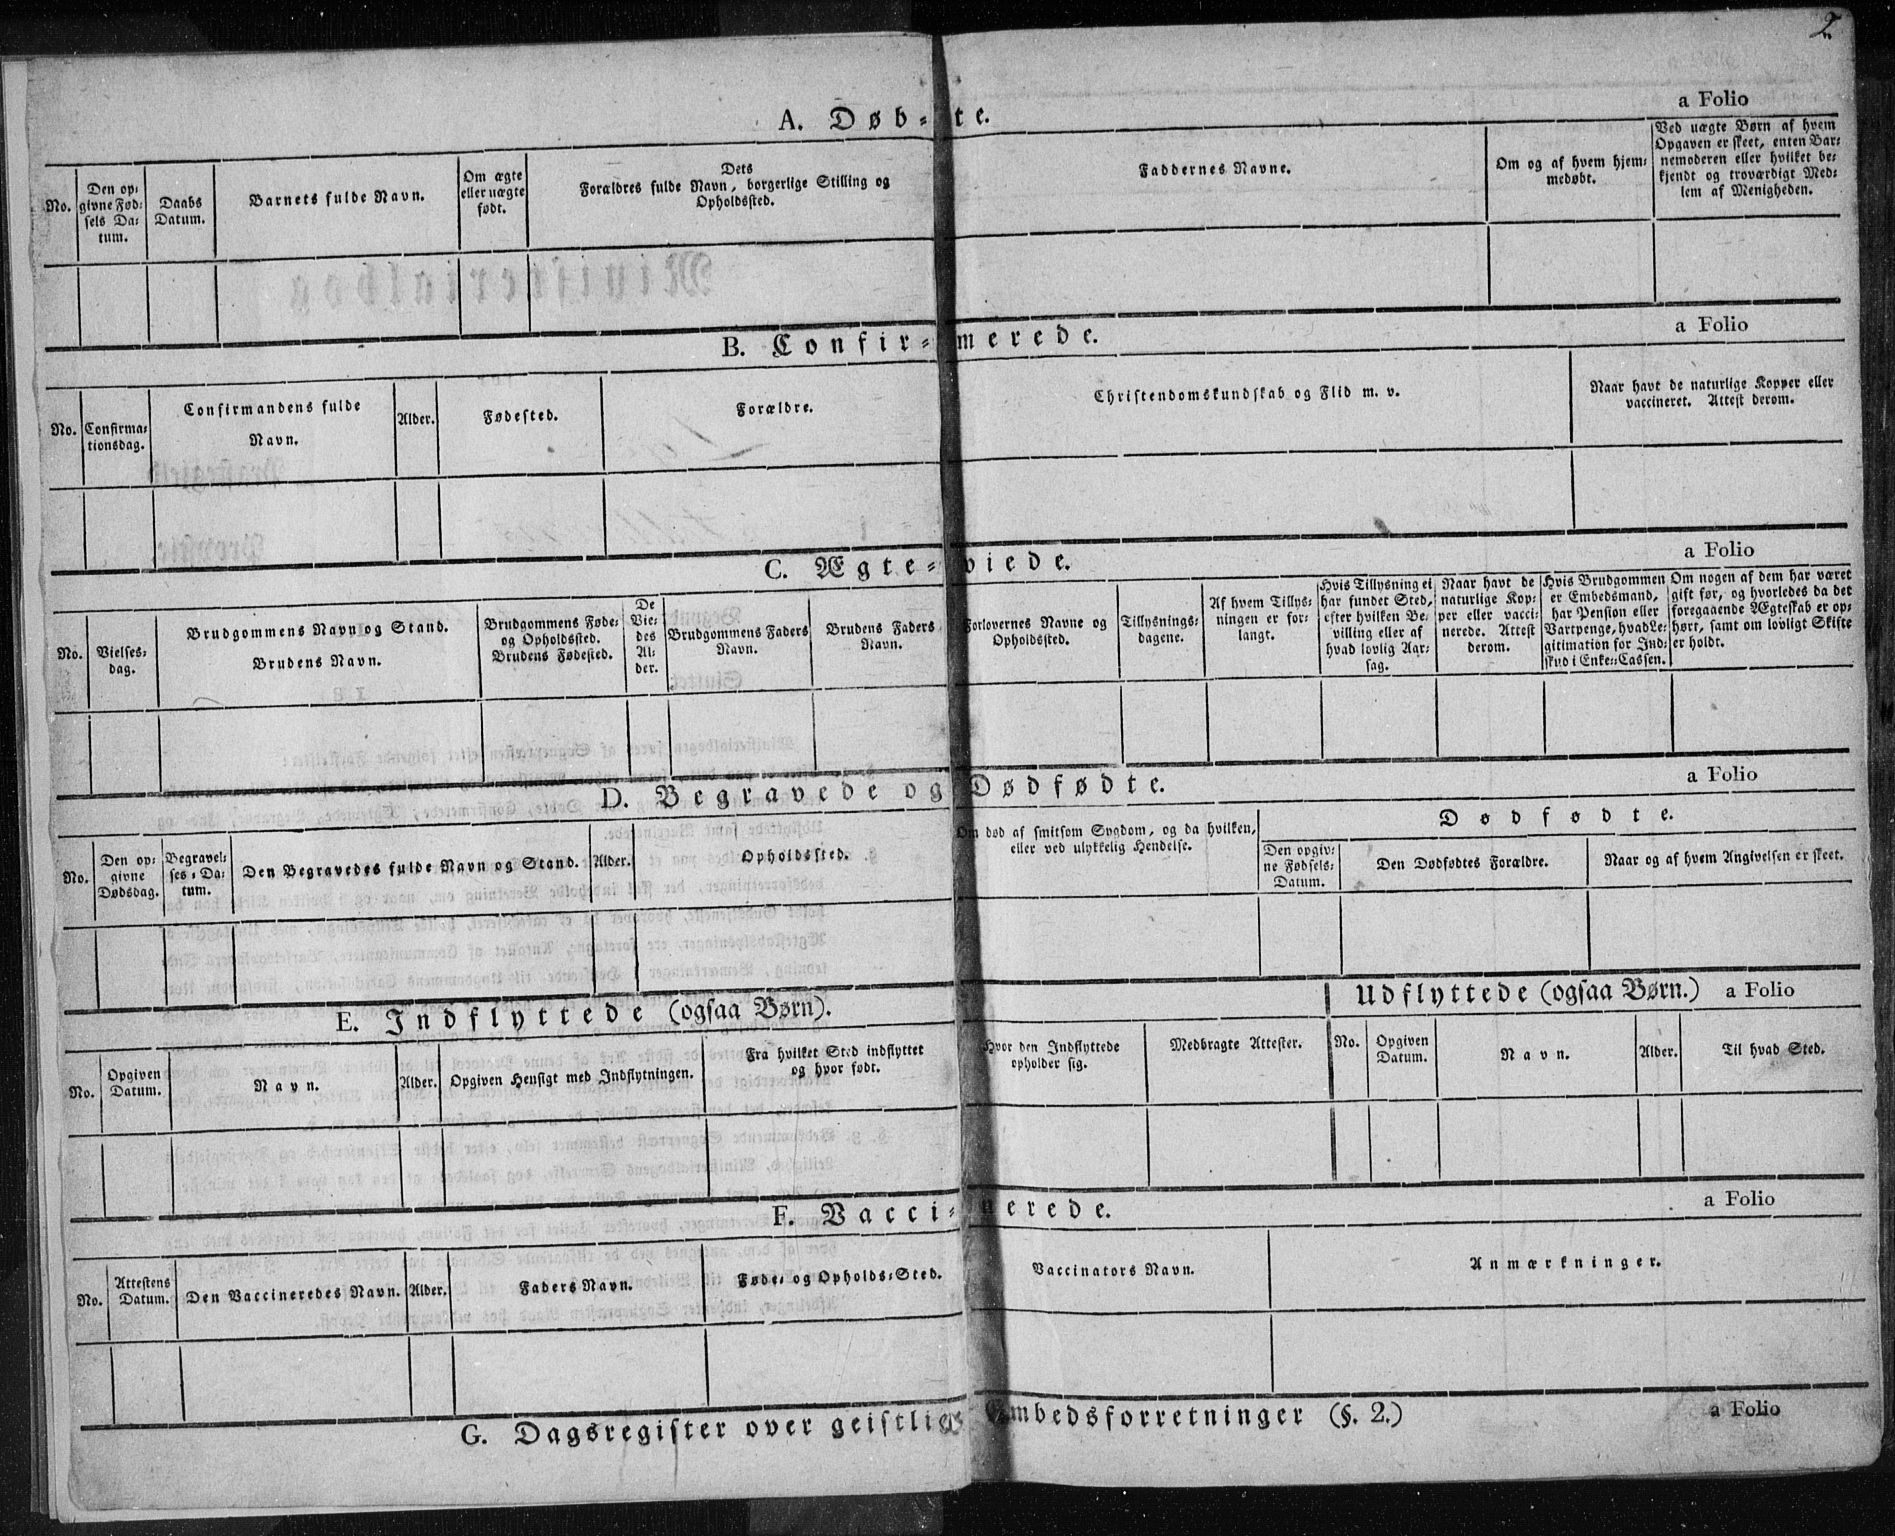 2
A. Døb-te.
a Folio
No.
Den op-
givne Fød-
sels Da-
tum.
Daabs
Datum.
Barnets fulde Navn.
Om ægte
eller uægte
født.
Dets
Forældres fulde Navn, borgerlige Stilling og
Opholdssted.
Faddernes Navne.
Om og af hvem hjem-
medøbt.
Ved uægte Børn af hvem
Opgaven er skeet, enten Bar-
nemoderen eller hvilket be-
kjendt og troværdigt Med-
lem af Menigheden.
B. Confir-merede.
a Folio
No.
Confirma-
tionsdag.
Confirmandens fulde
Navn.
Alder.
Fødested.
Forældre.
Christendomskundskab og Flid m. v.
Naar havt de naturlige Kopper eller
vaccineret. Attest derom.
C. Ægte-viede.
a Folio
No.
Vielses-
dag.
Brudgommens Navn og Stand.
Brudens Navn.
Brudgommens Føde-
og Opholdssted.
Brudens Fødested.
De
Vie-
des
Al-
der.
Brudgommens Faders
Navn.
Brudens Faders
Navn.
Forlovernes Navne og
Opholdssted.
Tillysnings-
dagene.
Af hvem Tillys-
ningen er for-
langt.
Hvis Tillysning ei
har fundet Sted,
efter hvilken Be-
villing eller af
hvad lovlig Aar-
sag.
Naar havt de
naturlige Kop-
per eller vacci-
nerede. Attest
derom.
Hvis Brudgommen
er Embedsmand,
har Pension eller
Vartpenge, hvad Le-
gitimation for Ind-
skud i Enke-Cassen.
Om nogen af dem har været
gift før, og hvorledes da det
foregaaende Ægteskab er op-
hørt, samt om lovligt Skifte
er holdt.
D. Begravede og Dødfødte.
a Folio
No.
Den op-
givne
Dødsdag.
Begravel-
ses-Da-
tum.
Den Begravedes fulde Navn og Stand.
Alder.
Opholdssted.
Om død af smitsom Sygdom, og da hvilken,
eller ved ulykkelig Hendelse.
Dødfødte.
Den opgiv-
ne Fødsels-
Datum.
Den Dødfødtes Forældre.
Naar og af hvem Angivelsen er skeet.
E. Indflyttede (ogsaa Børn).
Udflyttede (ogsaa Børn.) a Folio
No.
Opgiven
Datum.
Navn.
Alder.
Opgiven Hensigt med Indflytningen.
Fra hvilket Sted indflyttet
og hvor født.
Hvor den Indflyttede
opholder sig.
Medbragte Attester.
No.
Opgiven
Datum.
Navn.
Alder.
Til hvad Sted.
F. Vacci-nerede.
a Folio
No.
Attestens
Datum.
Den Vaccineredes Navn.
Alder.
Faders Navn.
Føde- og Opholds-Sted.
Vaccinators Navn.
Anmærkninger.
G. Dagsregister over geistlige Embedsforretninger (§. 2.)
a Folio